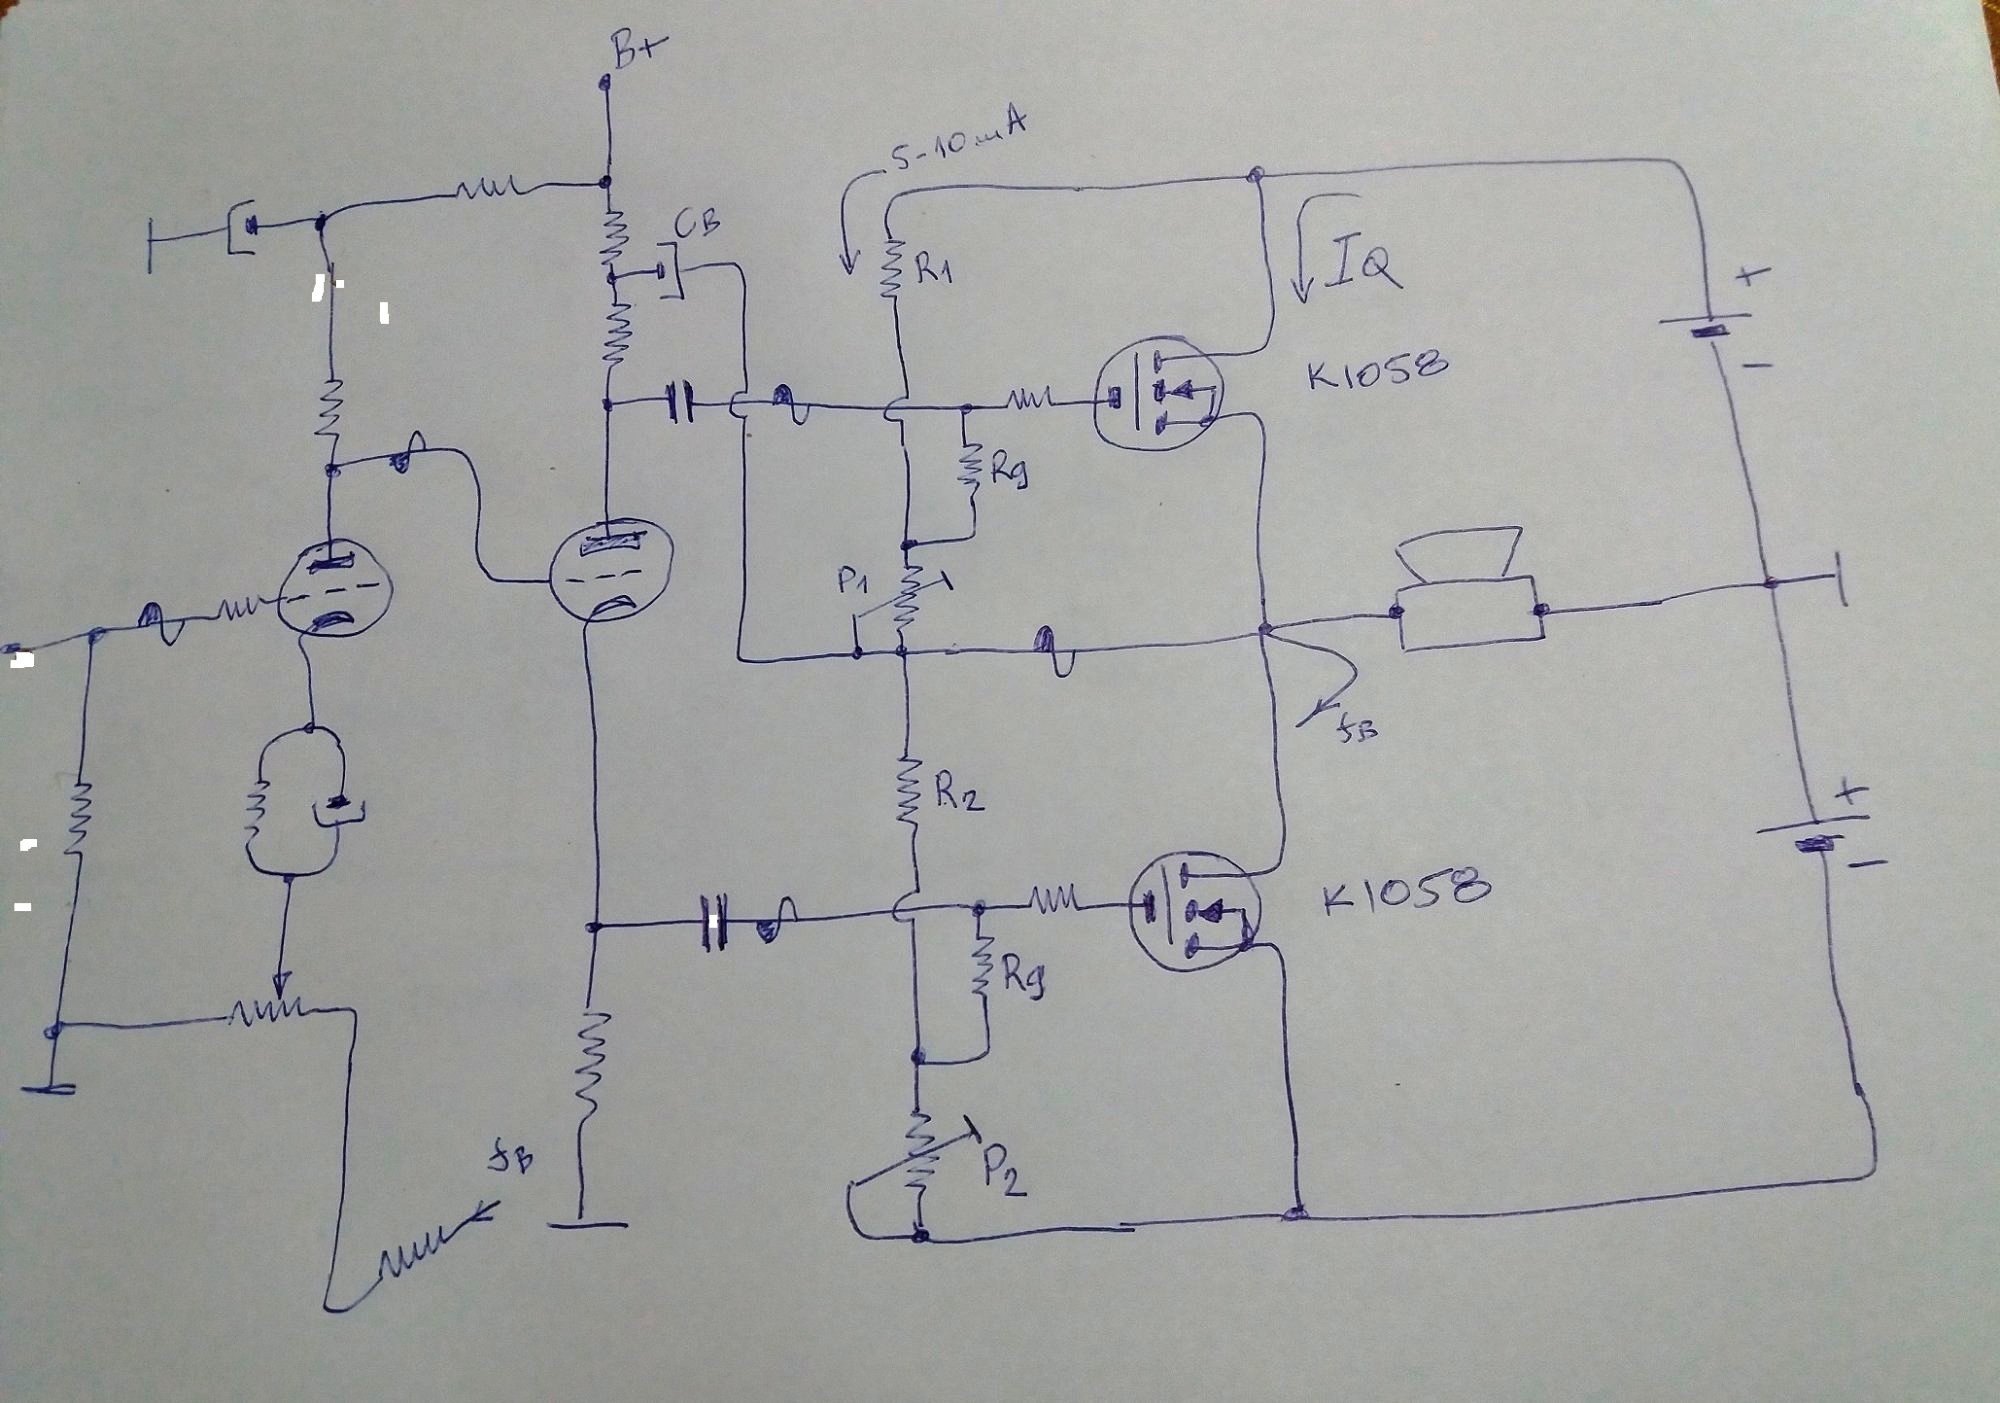 B+
5-10mA
CB
R1
IQ
+
K1058
-
Rg
P1
fB
R2
+
K1058
-
Rg
fB
P2